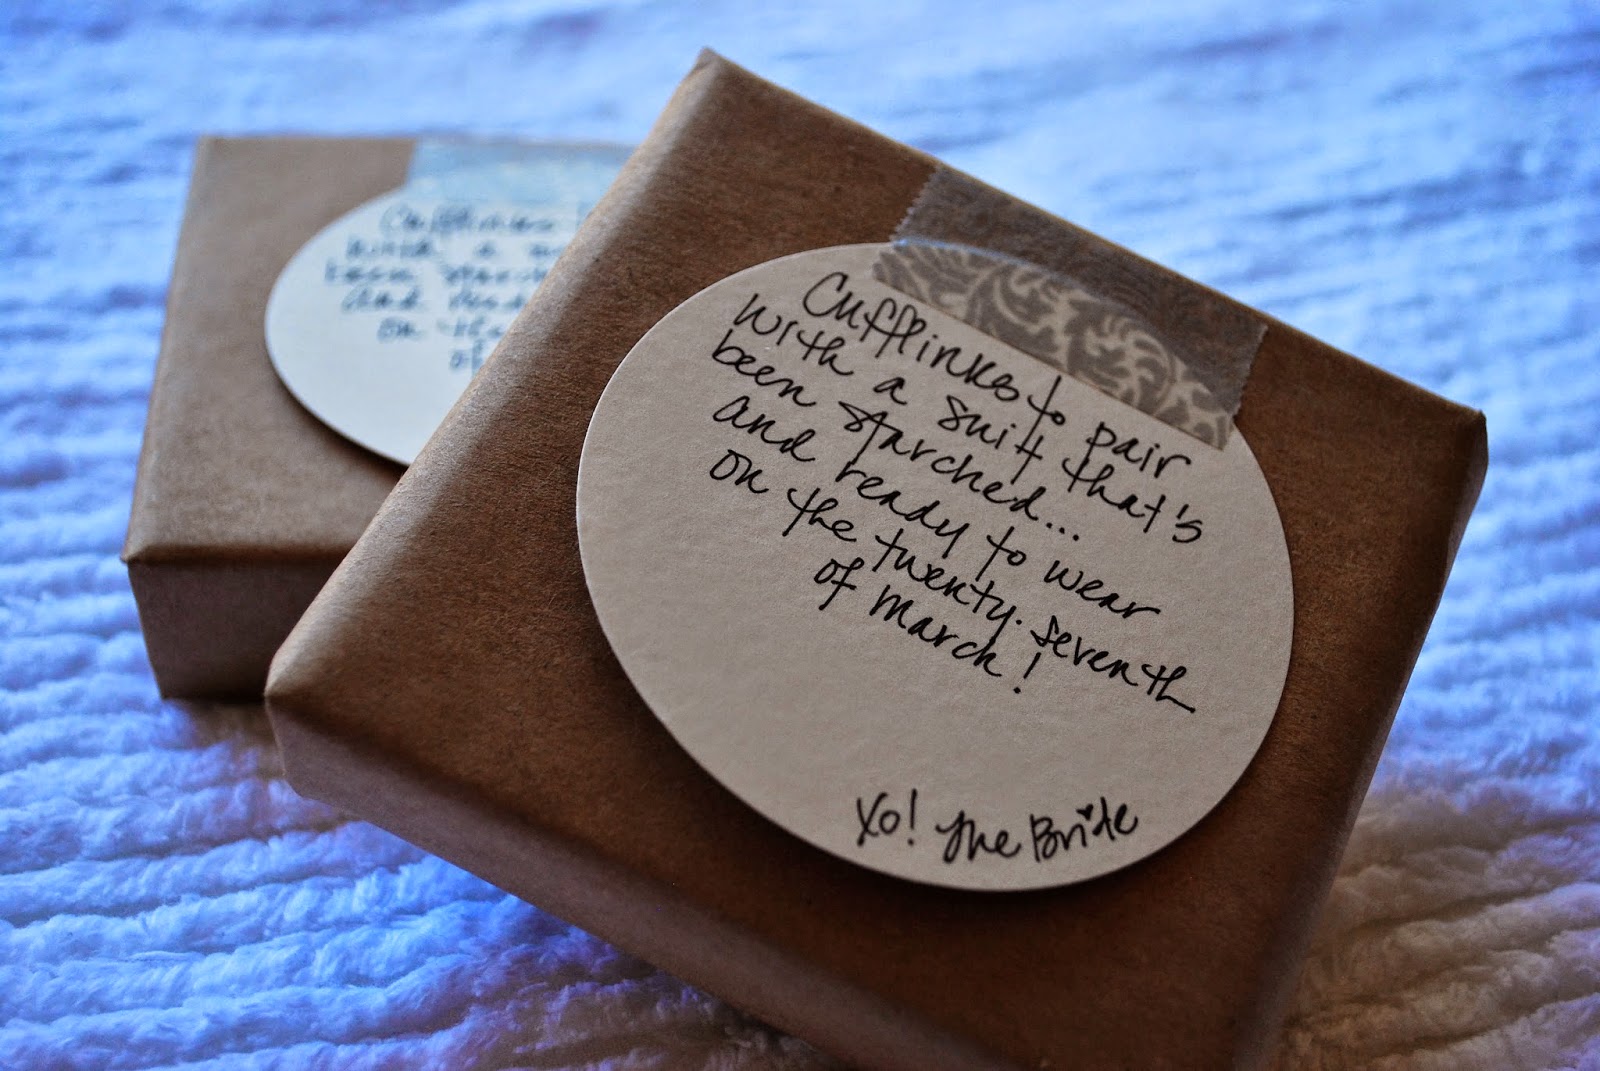 Cufflinks to pair
with a suit that's
been starched...
and ready to wear
on the twenty.seventh
of march!
xo! the Bride
Cufflinks
with a
been
and
on the
of